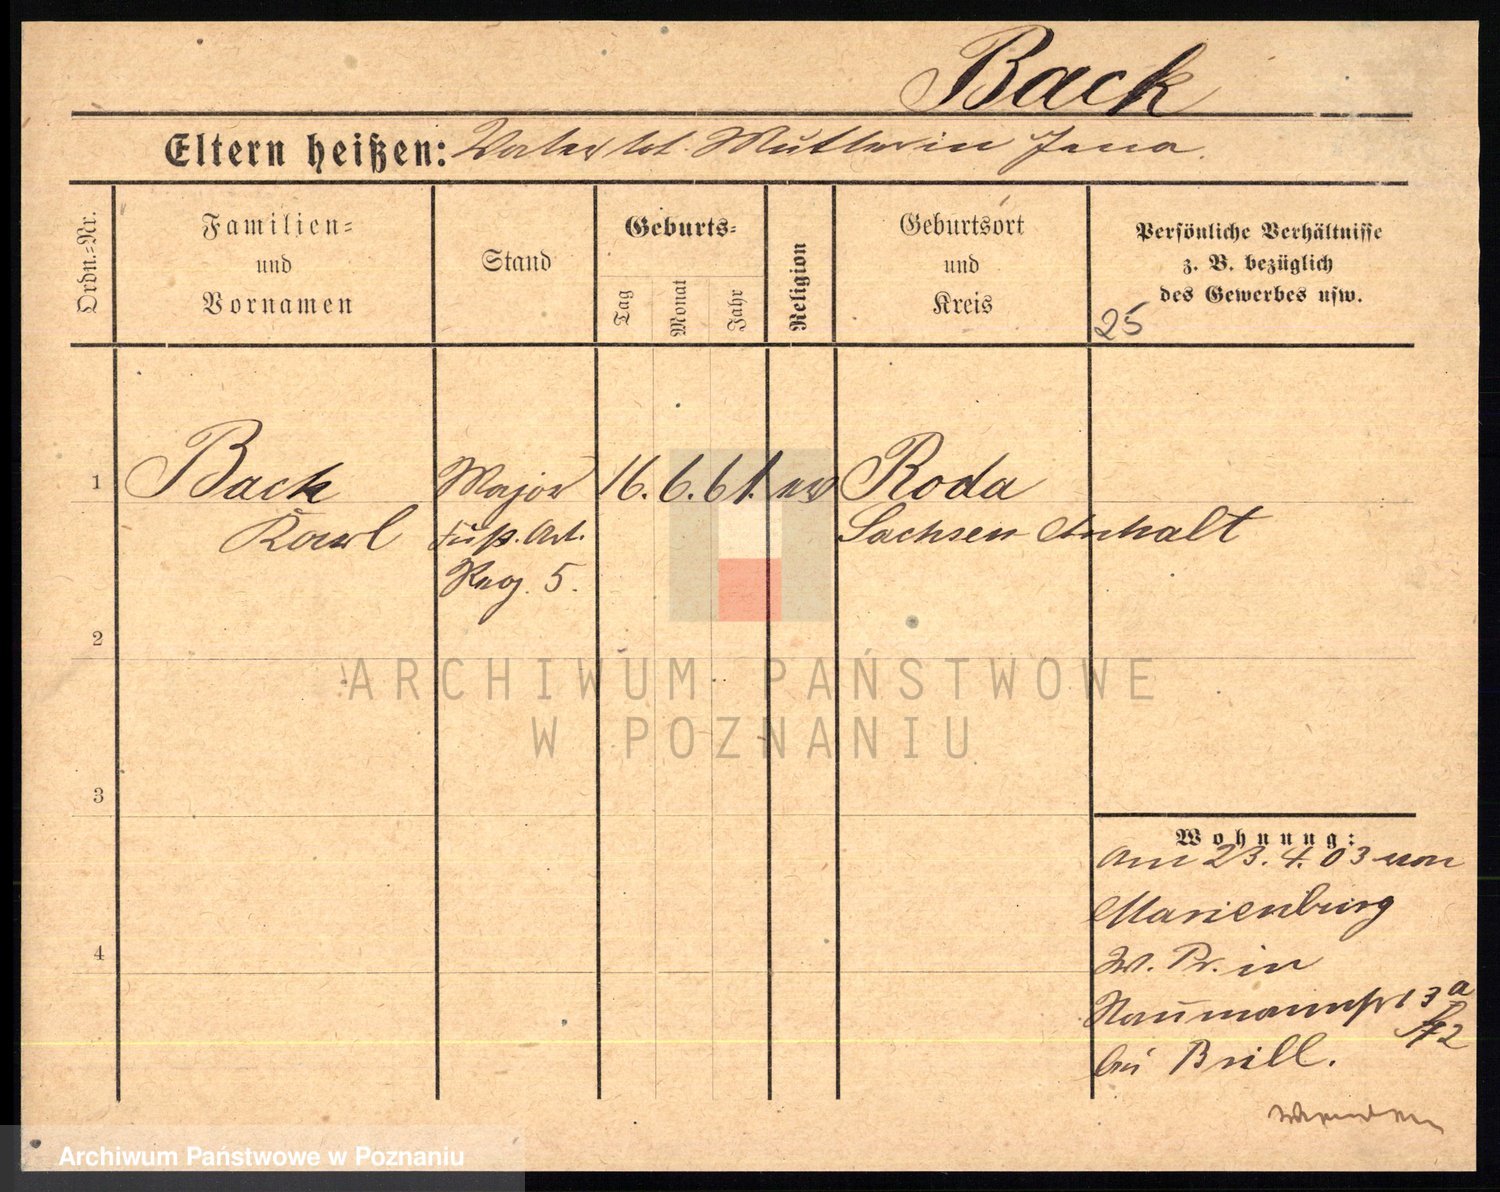 Back
Eltern heißen: Vater tot. Mutter in Jena.
Ordn.-Nr.
Familien-
und
Vornamen
Stand
Geburts-
Tag
Monat
Jahr
Religion
Geburtsort
und
Kreis
Persönliche Verhältnisse
z. B. bezüglich
des Gewerbes usw.
25
1 Back Major 16. 6. 61. ev Roda
Karl Fuß. Art. Sachsen Anhalt
Reg. 5.
2
ARCHIWUM PAŃSTWOWE
W POZNANIU
3
Wohnung:
am 23. 4. 03 von
Marienburg
4
W. Pr. in
Naumannstr 13 a
bei Brill.
Wenden
Archiwum Państwowe w Poznaniu